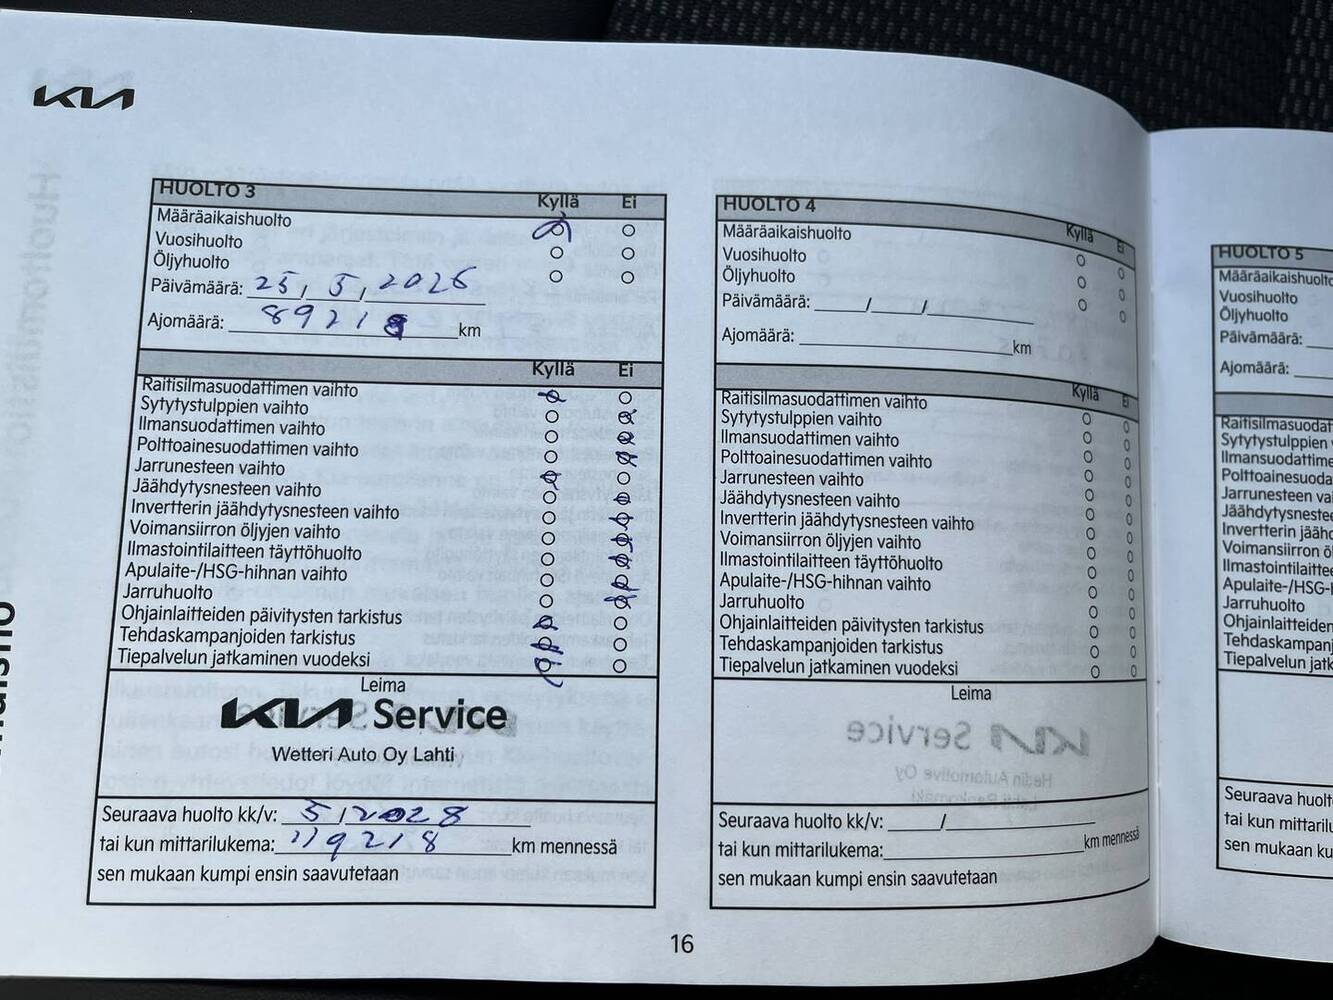 KIA
HUOLTO 3
Kyllä Ei
Määräaikaishuolto
Vuosihuolto
Öljyhuolto
Päivämäärä: 25, 5, 2026
Ajomäärä: 89218 km
Kyllä Ei
Raitisilmasuodattimen vaihto
Sytytystulppien vaihto
Ilmansuodattimen vaihto
Polttoainesuodattimen vaihto
Jarrunesteen vaihto
Jäähdytysnesteen vaihto
Invertterin jäähdytysnesteen vaihto
Voimansiirron öljyjen vaihto
Ilmastointilaitteen täyttöhuolto
Apulaite-/HSG-hihnan vaihto
Jarruhuolto
Ohjainlaitteiden päivitysten tarkistus
Tehdaskampanjoiden tarkistus
Tiepalvelun jatkaminen vuodeksi
Leima
KIA Service
Wetteri Auto Oy Lahti
Seuraava huolto kk/v: 5 / 2028
tai kun mittarilukema: 119218 km mennessä
sen mukaan kumpi ensin saavutetaan
HUOLTO 4
Kyllä Ei
Määräaikaishuolto
Vuosihuolto
Öljyhuolto
Päivämäärä: / /
Ajomäärä: km
Kyllä Ei
Raitisilmasuodattimen vaihto
Sytytystulppien vaihto
Ilmansuodattimen vaihto
Polttoainesuodattimen vaihto
Jarrunesteen vaihto
Jäähdytysnesteen vaihto
Invertterin jäähdytysnesteen vaihto
Voimansiirron öljyjen vaihto
Ilmastointilaitteen täyttöhuolto
Apulaite-/HSG-hihnan vaihto
Jarruhuolto
Ohjainlaitteiden päivitysten tarkistus
Tehdaskampanjoiden tarkistus
Tiepalvelun jatkaminen vuodeksi
Leima
Seuraava huolto kk/v: /
tai kun mittarilukema: km mennessä
sen mukaan kumpi ensin saavutetaan
16
HUOLTO 5
Määräaikaishuolto
Vuosihuolto
Öljyhuolto
Päivämäärä:
Ajomäärä:
Raitisilmasuodat
Sytytystulppien
Ilmansuodattime
Polttoainesuoda
Jarrunesteen va
Jäähdytysnestee
Invertterin jääh
Voimansiirron ö
Ilmastointilaitte
Apulaite-/HSG-
Jarruhuolto
Ohjainlaitteiden
Tehdaskampanj
Tiepalvelun jatk
Seuraava huolt
tai kun mittarilu
sen mukaan ku